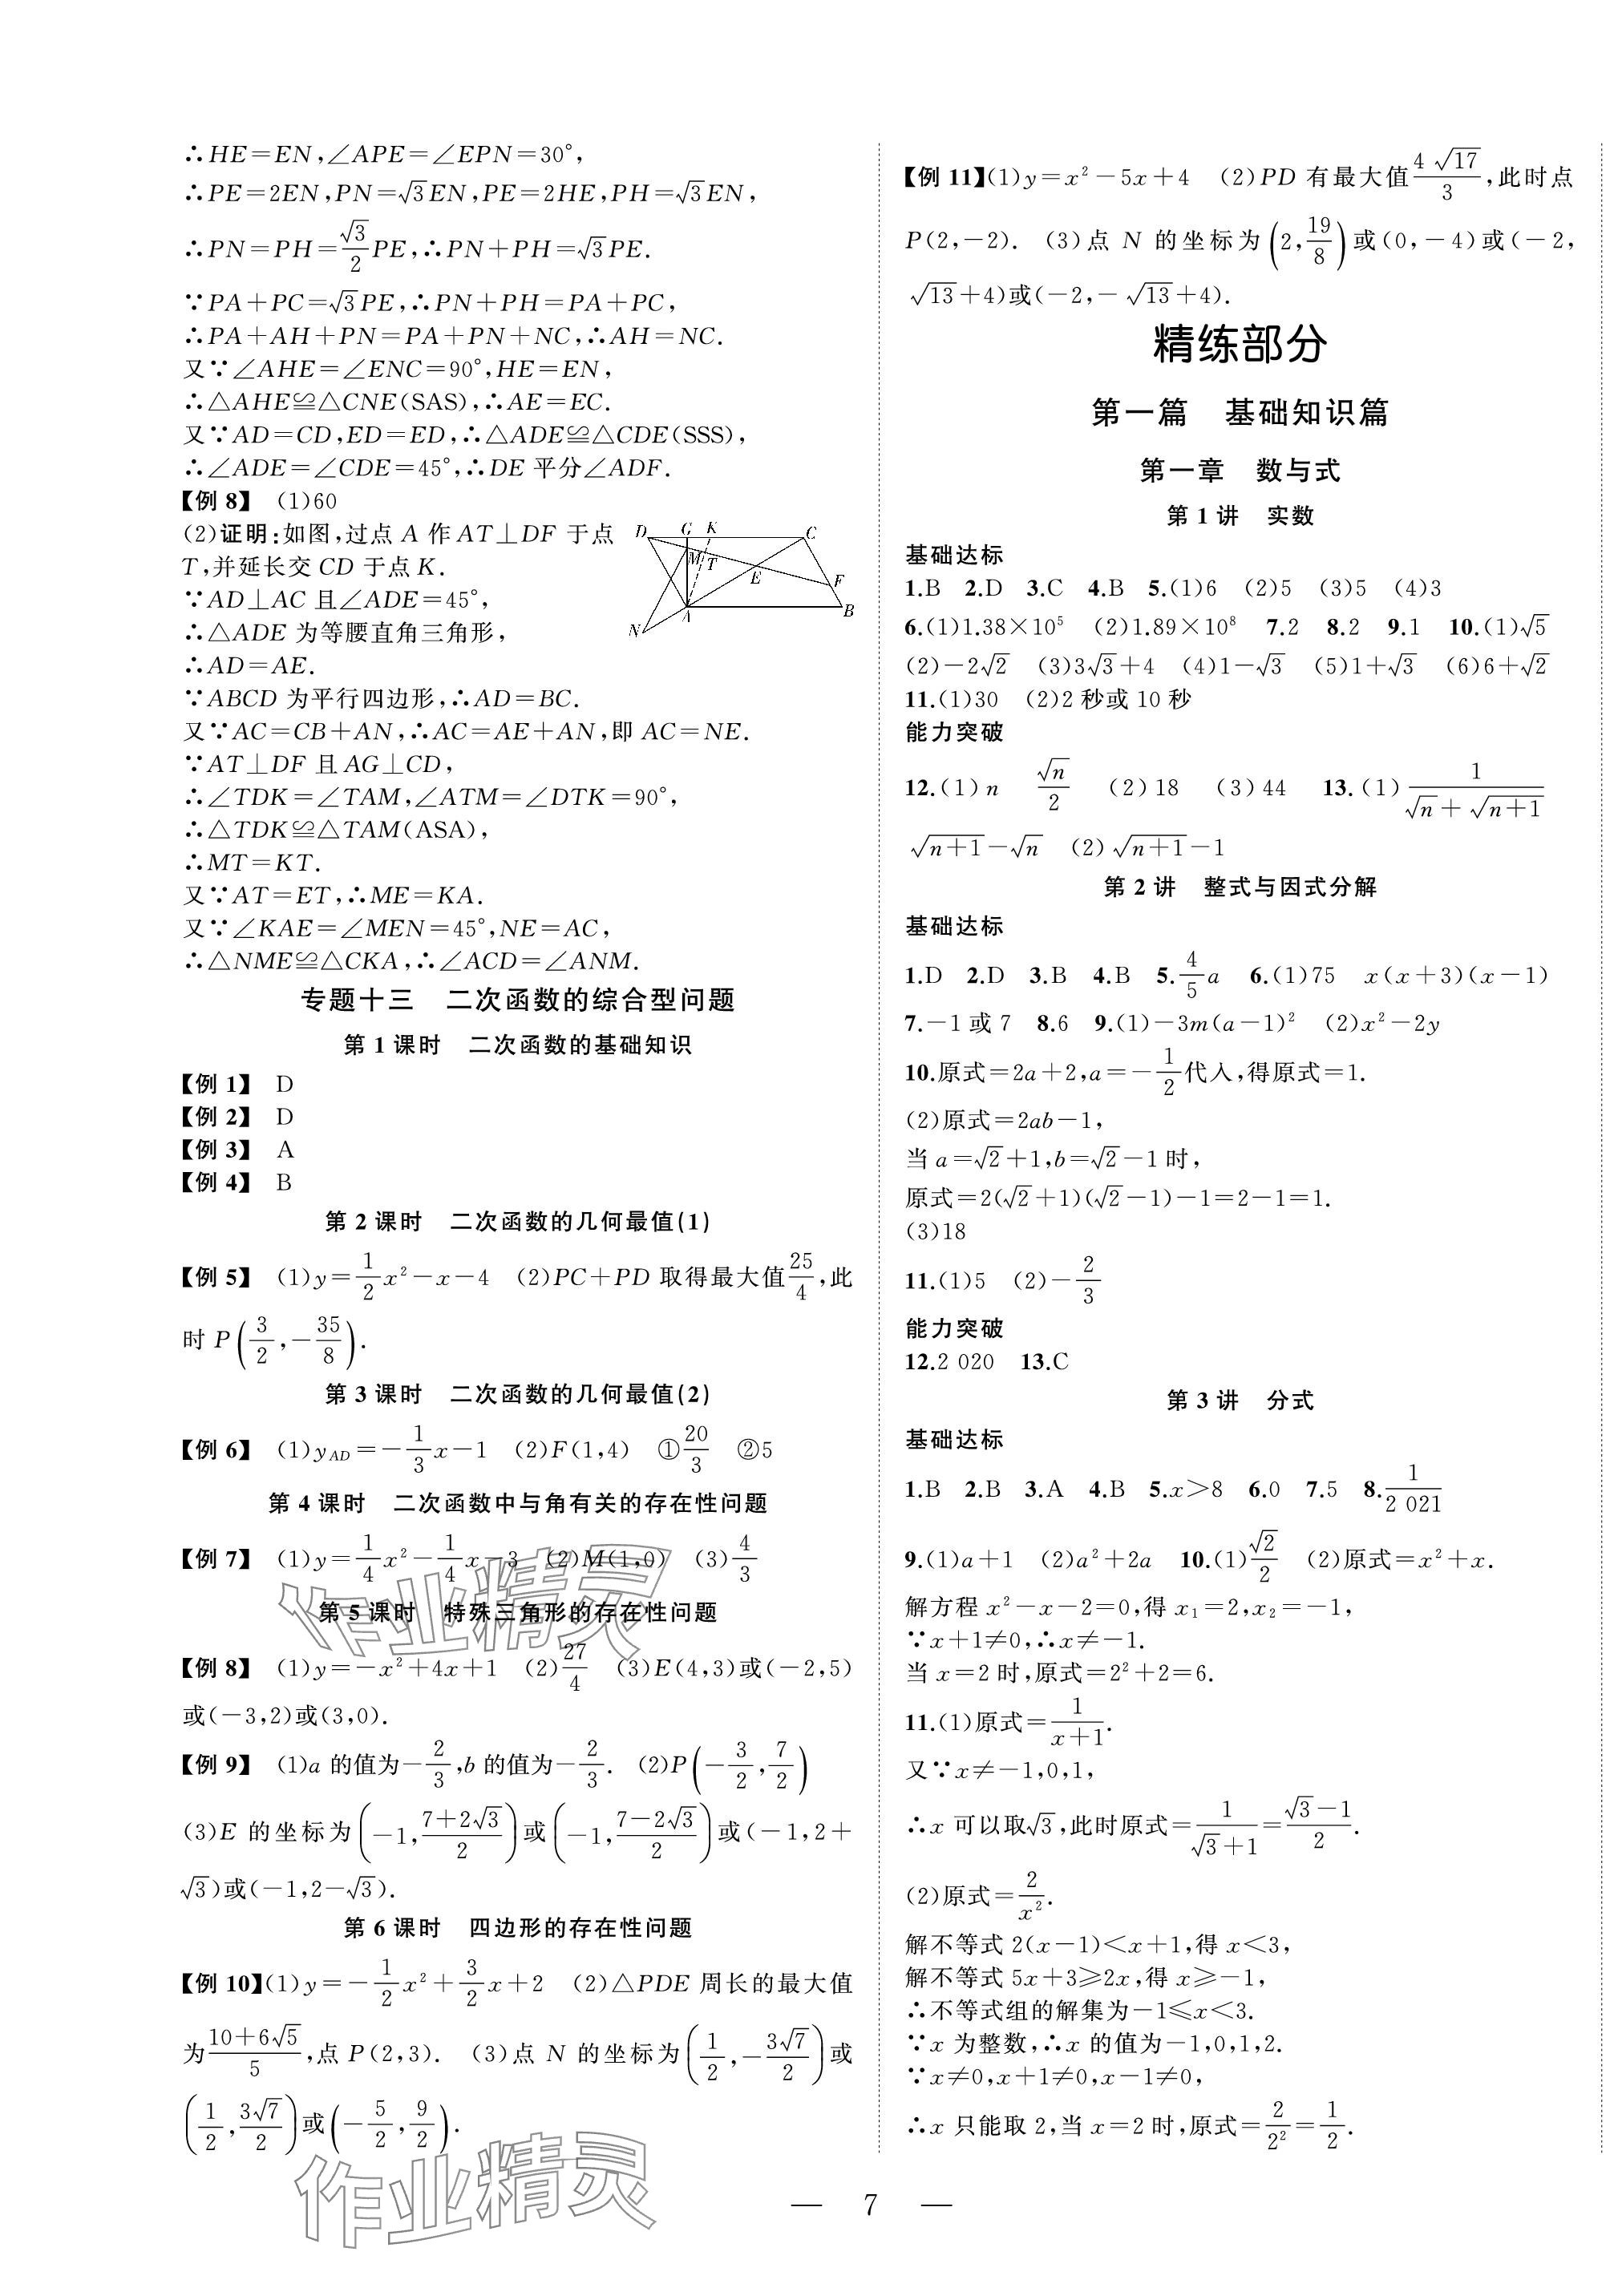 ∴HE=EN,∠APE=∠EPN=30°,
∴PE=2EN,PN=√3EN,PE=2HE,PH=√3EN,
∴PN=PH=√3/2 PE,∴PN+PH=√3PE.
∵PA+PC=√3PE,∴PN+PH=PA+PC,
∴PA+AH+PN=PA+PN+NC,∴AH=NC.
又∵∠AHE=∠ENC=90°,HE=EN,
∴△AHE≌△CNE(SAS),∴AE=EC.
又∵AD=CD,ED=ED,∴△ADE≌△CDE(SSS),
∴∠ADE=∠CDE=45°,∴DE平分∠ADF.
【例 8】 (1)60
(2)证明:如图,过点 A 作 AT⊥DF 于点
T,并延长交 CD 于点 K.
∵AD⊥AC 且∠ADE=45°,
∴△ADE 为等腰直角三角形,
∴AD=AE.
D G K C
M T E F
A B
N
∵ABCD 为平行四边形,∴AD=BC.
又∵AC=CB+AN,∴AC=AE+AN,即 AC=NE.
∵AT⊥DF 且 AG⊥CD,
∴∠TDK=∠TAM,∠ATM=∠DTK=90°,
∴△TDK≌△TAM(ASA),
∴MT=KT.
又∵AT=ET,∴ME=KA.
又∵∠KAE=∠MEN=45°,NE=AC,
∴△NME≌△CKA,∴∠ACD=∠ANM.
专题十三 二次函数的综合型问题
第 1 课时 二次函数的基础知识
【例 1】 D
【例 2】 D
【例 3】 A
【例 4】 B
第 2 课时 二次函数的几何最值(1)
【例 5】 (1)y=1/2 x²-x-4 (2)PC+PD 取得最大值25/4,此
时 P(3/2,-35/8).
第 3 课时 二次函数的几何最值(2)
【例 6】 (1)y_AD=-1/3 x-1 (2)F(1,4) ①20/3 ②5
第 4 课时 二次函数中与角有关的存在性问题
【例 7】 (1)y=1/4 x²-1/4 x-3 (2)M(1,0) (3)4/3
第 5 课时 特殊三角形的存在性问题
【例 8】 (1)y=-x²+4x+1 (2)27/4 (3)E(4,3)或(-2,5)
或(-3,2)或(3,0).
【例 9】 (1)a 的值为-2/3,b 的值为-2/3. (2)P(-3/2,7/2)
(3)E 的坐标为(-1,(7+2√3)/2)或(-1,(7-2√3)/2)或(-1,2+
√3)或(-1,2-√3).
第 6 课时 四边形的存在性问题
【例 10】(1)y=-1/2 x²+3/2 x+2 (2)△PDE 周长的最大值
为(10+6√5)/5,点 P(2,3). (3)点 N 的坐标为(1/2,-3√7/2)或
(1/2,3√7/2)或(-5/2,9/2).
【例 11】(1)y=x²-5x+4 (2)PD 有最大值4√17/3,此时点
P(2,-2). (3)点 N 的坐标为(2,19/8)或(0,-4)或(-2,
√13+4)或(-2,-√13+4).
精练部分
第一篇 基础知识篇
第一章 数与式
第 1 讲 实数
基础达标
1.B 2.D 3.C 4.B 5.(1)6 (2)5 (3)5 (4)3
6.(1)1.38×10⁵ (2)1.89×10⁸ 7.2 8.2 9.1 10.(1)√5
(2)-2√2 (3)3√3+4 (4)1-√3 (5)1+√3 (6)6+√2
11.(1)30 (2)2 秒或 10 秒
能力突破
12.(1)n √n/2 (2)18 (3)44 13.(1)1/(√n+√(n+1))
√(n+1)-√n (2)√(n+1)-1
第 2 讲 整式与因式分解
基础达标
1.D 2.D 3.B 4.B 5.4/5 a 6.(1)75 x(x+3)(x-1)
7.-1 或 7 8.6 9.(1)-3m(a-1)² (2)x²-2y
10.原式=2a+2,a=-1/2代入,得原式=1.
(2)原式=2ab-1,
当 a=√2+1,b=√2-1 时,
原式=2(√2+1)(√2-1)-1=2-1=1.
(3)18
11.(1)5 (2)-2/3
能力突破
12.2 020 13.C
第 3 讲 分式
基础达标
1.B 2.B 3.A 4.B 5.x>8 6.0 7.5 8.1/2 021
9.(1)a+1 (2)a²+2a 10.(1)√2/2 (2)原式=x²+x.
解方程 x²-x-2=0,得 x₁=2,x₂=-1,
∵x+1≠0,∴x≠-1.
当 x=2 时,原式=2²+2=6.
11.(1)原式=1/(x+1).
又∵x≠-1,0,1,
∴x 可以取√3,此时原式=1/(√3+1)=(√3-1)/2.
(2)原式=2/x².
解不等式 2(x-1)<x+1,得 x<3,
解不等式 5x+3≥2x,得 x≥-1,
∴不等式组的解集为-1≤x<3.
∵x 为整数,∴x 的值为-1,0,1,2.
∵x≠0,x+1≠0,x-1≠0,
∴x 只能取 2,当 x=2 时,原式=2/2²=1/2.
— 7 —
作业精灵
作业精灵